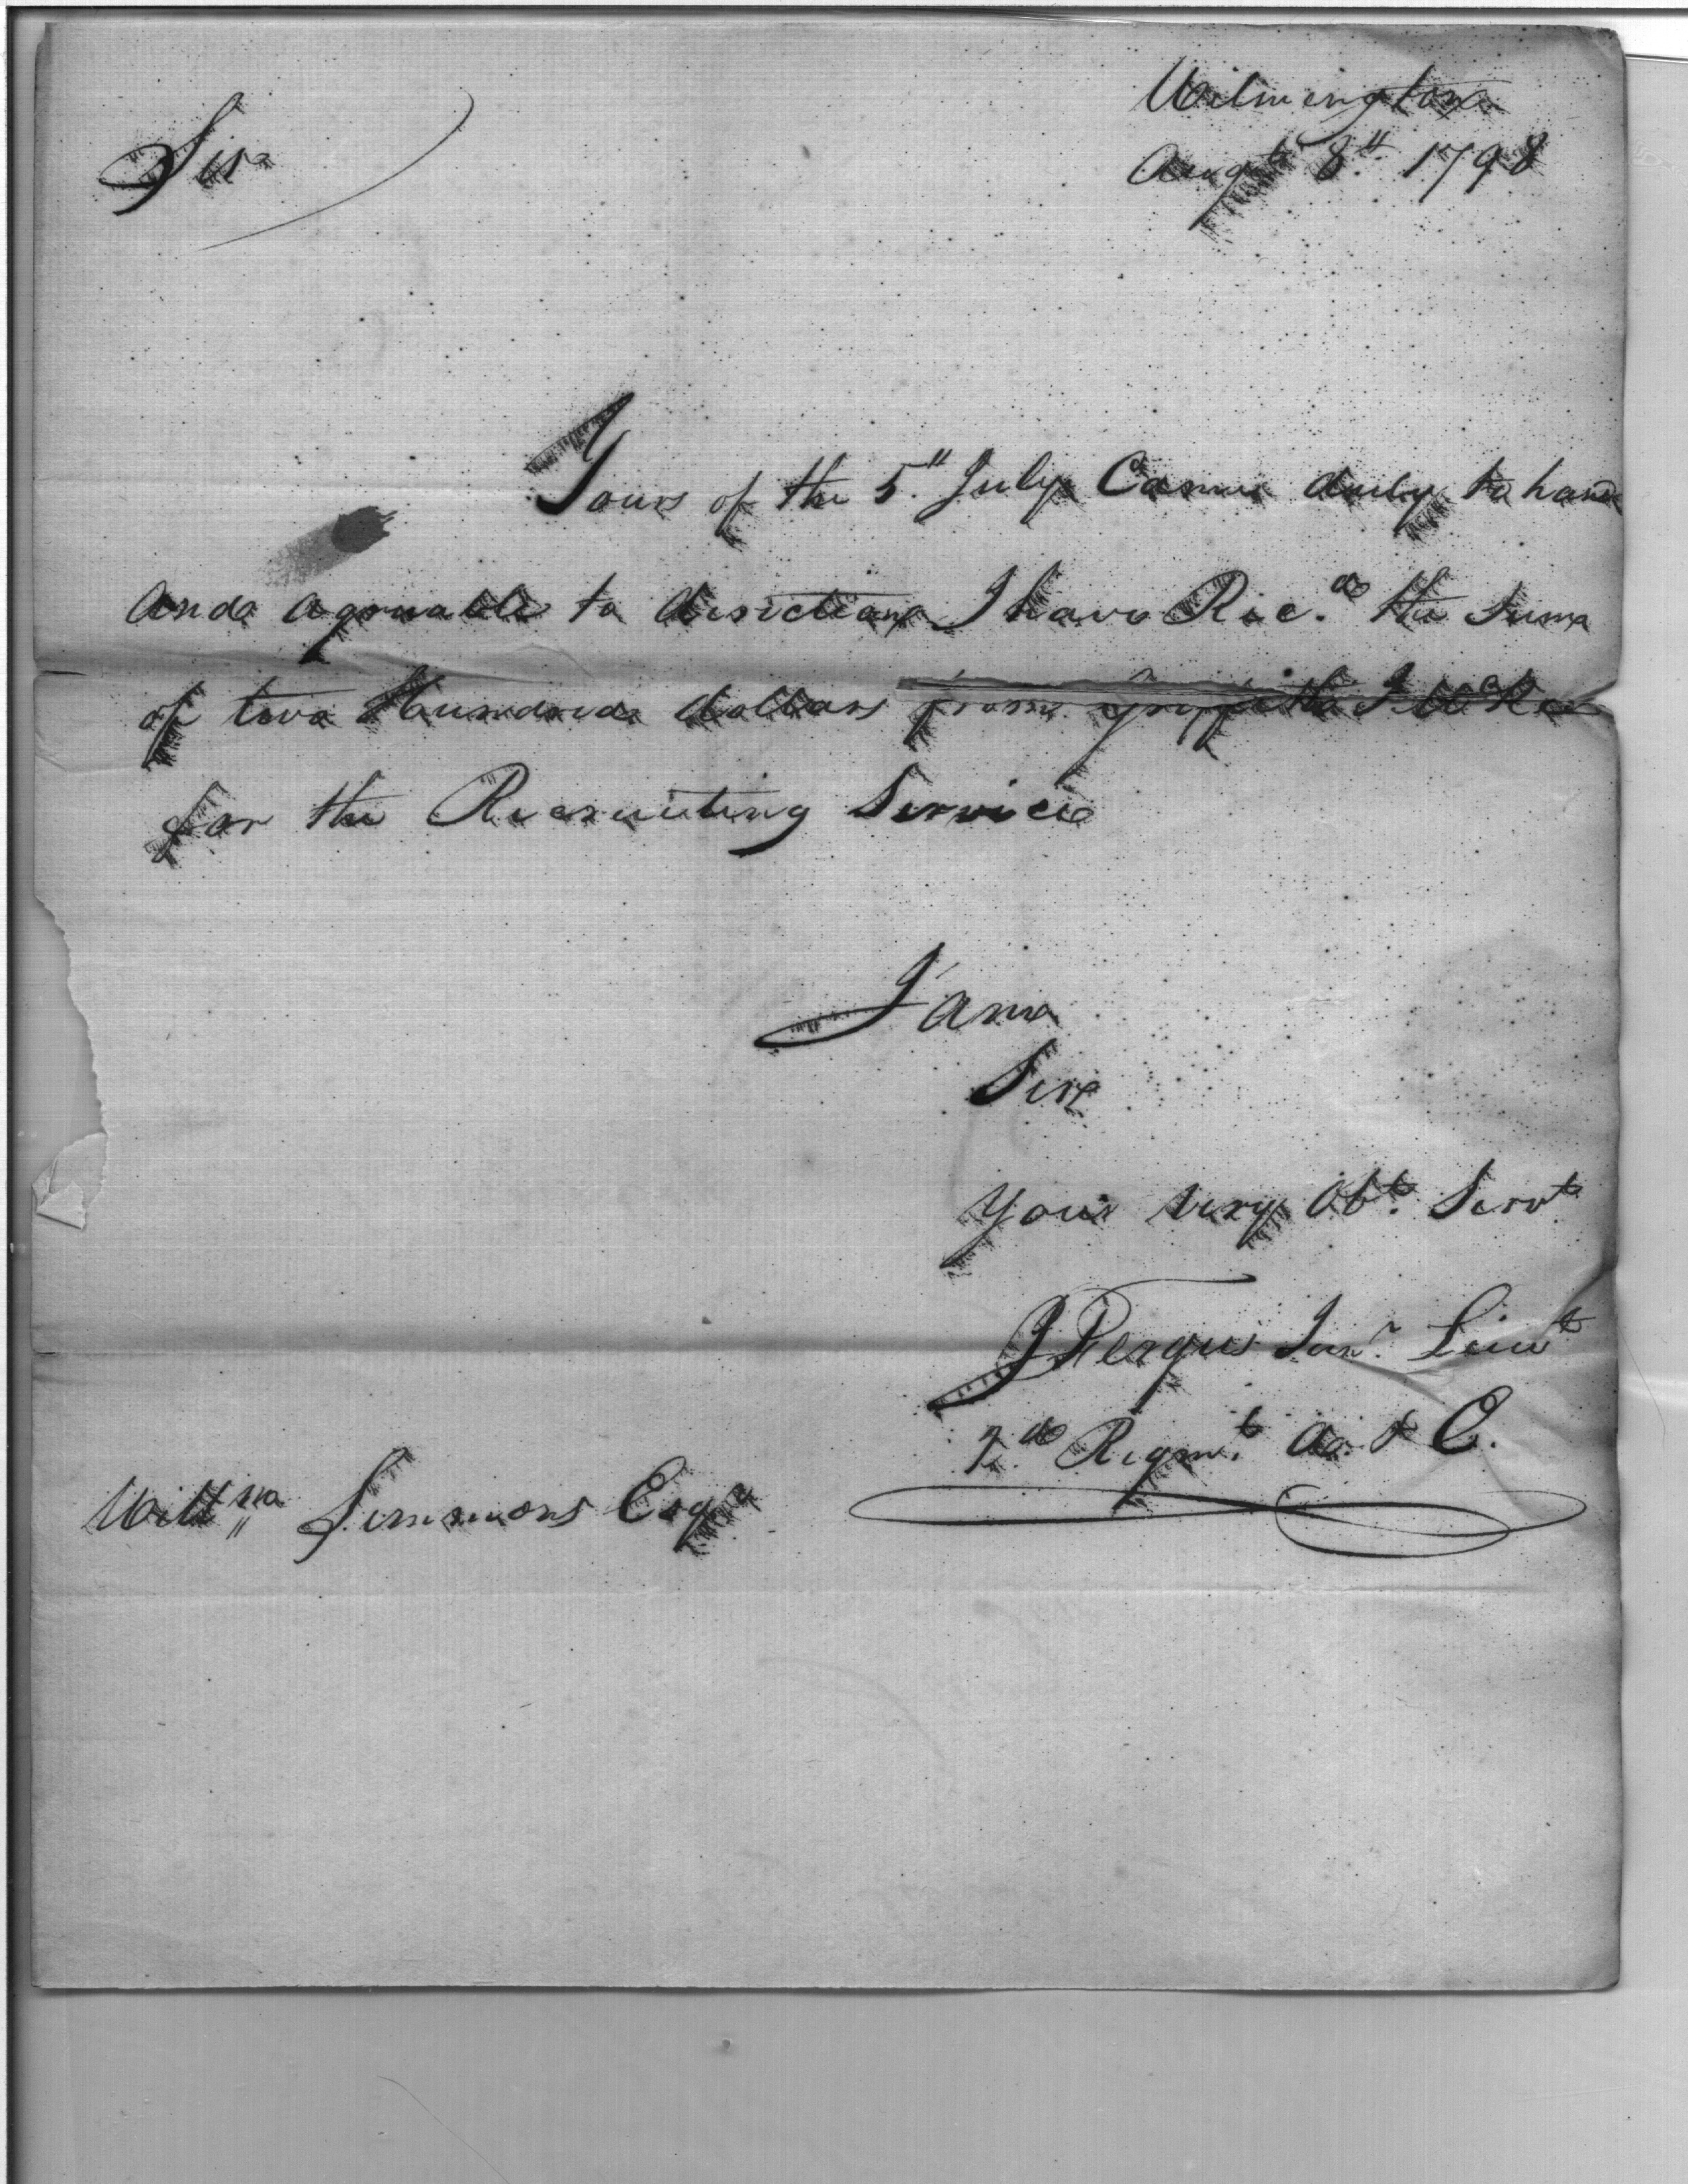 Wilmington
Augt 8th 1798
Sir
Yours of the 5th July Came duly to hand
and agreeable to direction I have Recd the Sum
of two Hundred dollars from Griffith J McRee
for the Recruiting Service
I am
Sir
Your very Obt. Servt
J Fergus Junr. Lieut
2d Regmt. A. & E.
Willm Simmons Esqr